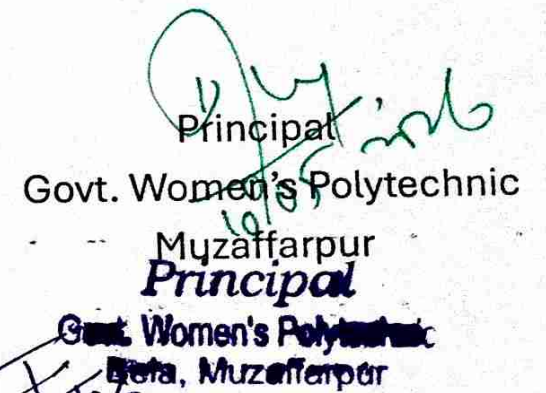 Principal
Govt. Women's Polytechnic
10/05
Muzaffarpur
Principal
Govt. Women's Polytechnic
Bela, Muzaffarpur